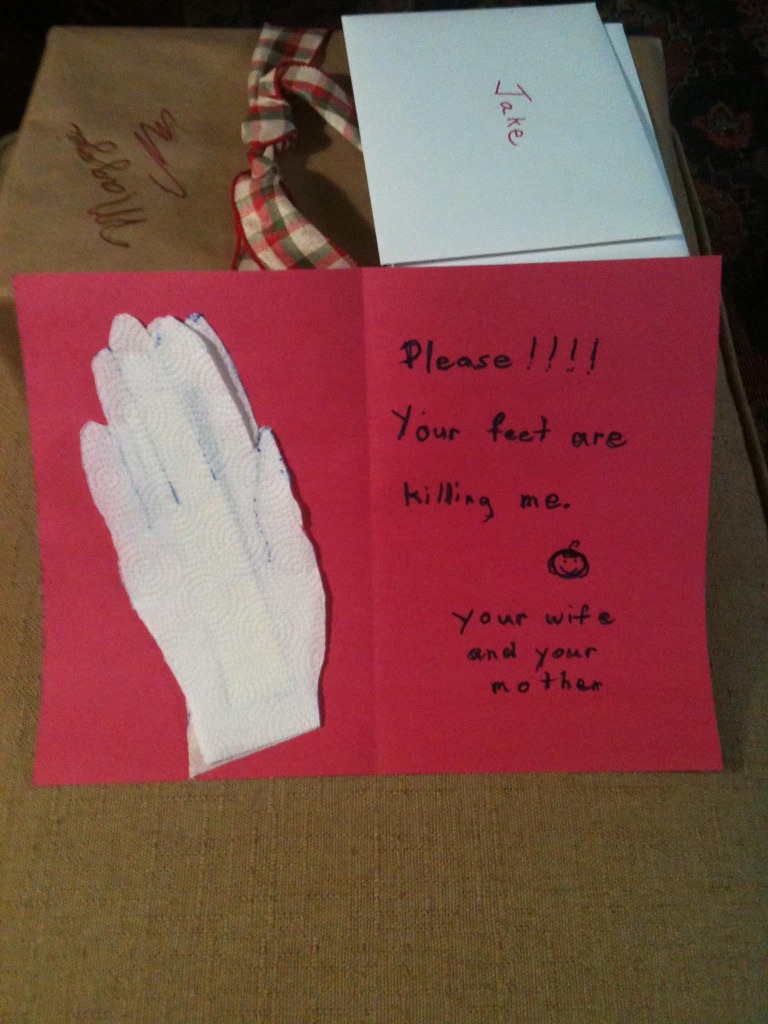 Maggie
Jake
Please!!!!
Your feet are
killing me.
your wife
and your
mother